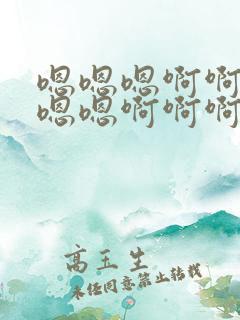 嗯嗯嗯啊啊
嗯嗯啊啊啊
高玉生
未经同意禁止转载